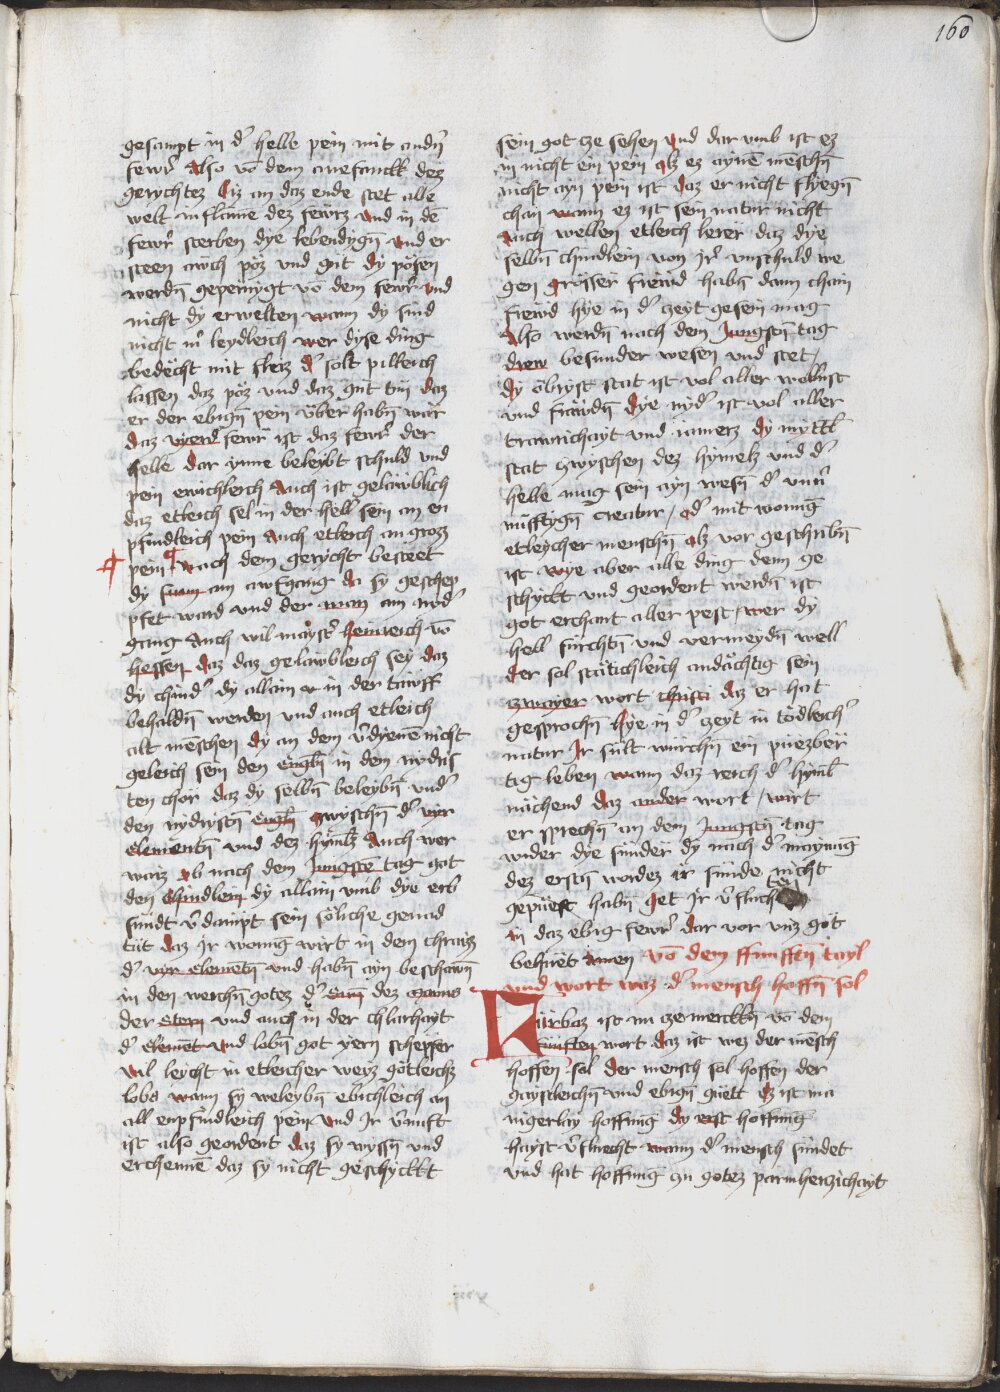 160
gesampt in d' helle pein mit andn̄
fewr̄ Also vō dem anefanckk dez
gerychtez Biz an daz ende stet alle
welt in flāme dez fewrz und in dē
fewr̄ sterben dye lebendign̄ und er
steen awch pöz und gůt dy pösen
werdn̄ gepeinygt vō dem fewr̄ und
nicht dy erwelten wann dy sind
nicht m̄ leydleich wer dyse ding
bedächt mit fleiz d' solt pilleich
lassen daz pöz und daz gůt tůn daz
er der ebign̄ pein über habn̄ wär
daz vyerd fewr̄ ist daz fewr̄ der
helle dar ynne beleybt schuld und
pein ewichleich Auch ist gelawblich
daz etleich sel in der hell sein an en
pfindleich pein Auch etleich an grozz
pein Nach dem gerycht besteet
dy sunn am awfgang da sy geschep
pfet ward und der man am nyd'
gang Auch wil mayst' heinreich vō
hessen daz daz gelawbleich sey daz
dy chind' dy allain in der tawff
behaldn̄ werden und auch etleich
alt menschen dy an dem v̄dienē nicht
geleich sein den engln̄ in den nydris
ten chör daz dy selbn̄ beleybn̄ und'
den nydristn̄ engln̄ zwyschn̄ d' vyr
elementn̄ und dez hymlz Auch wer
waiz ob nach dem Jungstē tag got
den chindlein dy allain umb dye erb
sündt v̄dampt sein söliche genad
tůt daz Jr wonūg wirt in dem chraiz
d' vyr elemētn̄ und habn̄ ayn beschawn̄
in den werchn̄ gotez d' sunn dez mans
der stern und auch in der chlarhayt
d' elemēt und lobn̄ got yern schepfer
vil leycht in etleicher weyz götleichz
lobs wann sy weleybn̄ ebichleich an
all enpfindleich pein und Jr v̄nuft
ist also geordent daz sy wyssn̄ und
erchennē daz sy nicht geschyckt
sein got ze sehen und dar umb ist ez
in nicht ein pein alz ez aynē mēschn̄
nicht ayn pein ist daz er nicht flyegn̄
chan wann ez ist sein natur nicht
Auch wellen etleich lerer daz dye
selbn̄ chindlein von Jr' unschuld we
gen grösser frewd habn̄ dann chain
frewd hye in d' zeyt gesein mag
Also werdn̄ nach dem Jungstn̄ tag
drew besunder wesen und stet /
dy öbryst stat ist vol aller wollust
und frawdn̄ dye nyd' ist vol aller
trawrichayt und iamerz dy myttl
stat zwyschen dez hymelz und d'
helle mag sein ayn wesn̄ d' unū
nüfftygn̄ creatur / od' mit wonūg
etleycher menschn̄ alz vor geschribn̄
ist wye aber alle ding dem ge
schyckt und geordent werdn̄ ist
got erchant aller pest / wer dy
hell fürchtn̄ und vermeydn̄ well
der sol stätichleich andächtig sein
zwayer wort christi daz er hat
gesprochn̄ hye in d' zeyt in tödleich'
natur Jr sült würchn̄ ein püezber
tig leben wann daz reich d' hyml̄
nächend daz ander wort / wirt
er sprechn̄ an dem Jungstn̄ tag
wider dye sünder dy nach d' maynūg
dez erstn̄ wordez ir sünde nicht
gepüest habn̄ get Jr v̄fluch ten
in daz ebig fewr̄ dar vor unz got
behüet amen vō dem ffunfftn̄ tayl
und wort waz d' mensch hoffn̄ sol
Fürbaz ist nu ze merckkn̄ vō dem
fünften wort daz ist wez der mēsch
hoffen sol der mensch sol hoffen der
gaystleichn̄ und ebign̄ güett Ez ist ma
nigerlay hoffnūg dy erst hoffnūg
hayst v̄fluecht wann d' mensch sündet
und hat hoffnūg zu gotez parmherzichayt